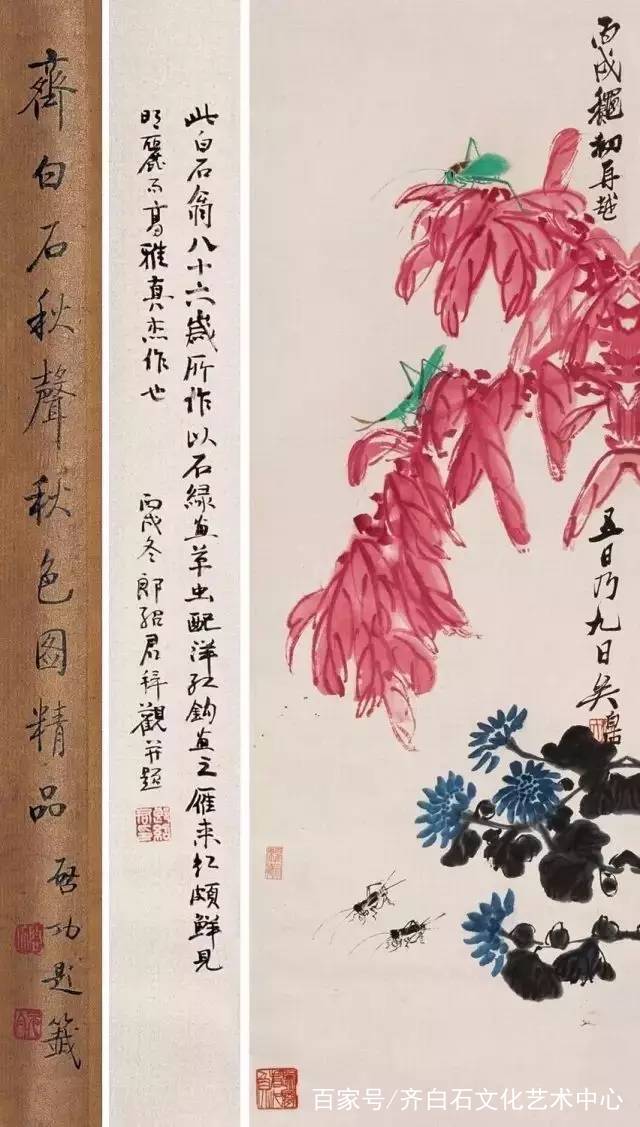 丙戌龝初再越
五日乃九日矣 白石
此白石翁八十六歲所作以石緑畫草虫配洋红鈎畫之雁来红頗鮮見
明麗而高雅真杰作也
丙戌冬郎紹君拜觀并題
齊白石秋聲秋色圖精品
啓功題籤
百家号/齐白石文化艺术中心